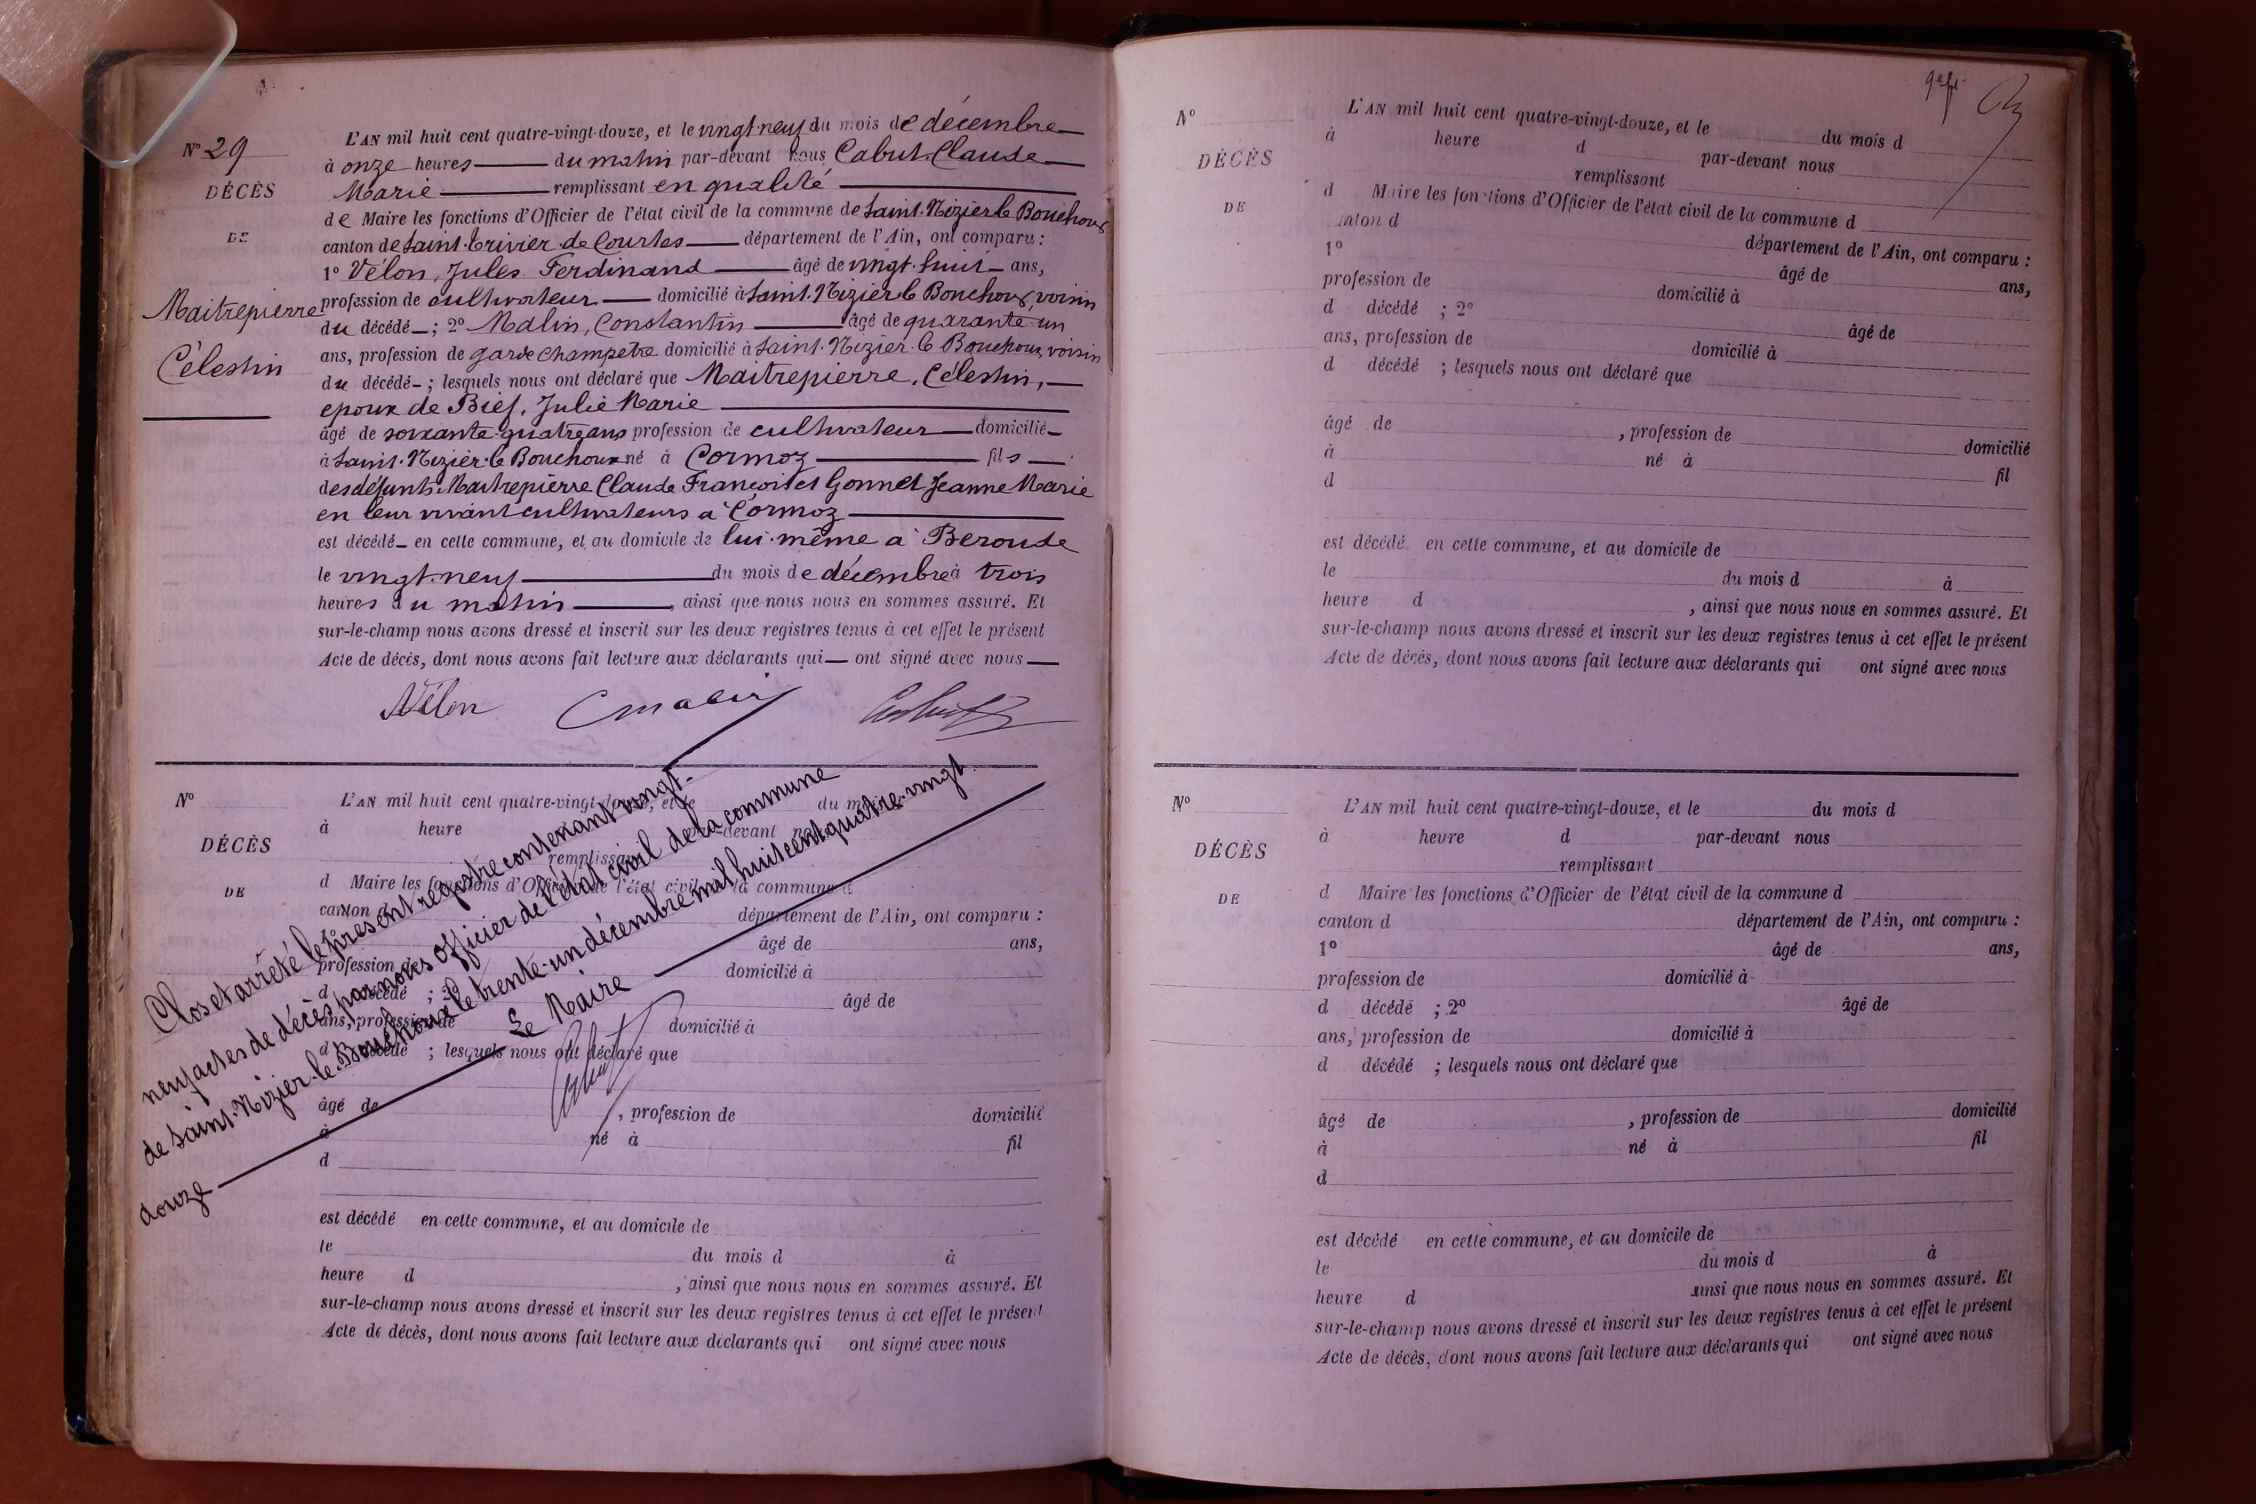 N° 29
DÉCÈS
DE
Maitrepierre
Célestin
L'AN mil huit cent quatre-vingt-douze, et le vingt-neuf du mois de décembre
à onze heures du matin par-devant nous Cabut, Claude
Marie remplissant en qualité
de Maire les fonctions d'Officier de l'état civil de la commune de Saint-Nizier-le-Bouchoux
canton de Saint-Trivier-de-Courtes département de l'Ain, ont comparu :
1° Vélon, Jules Ferdinand âgé de vingt-huit ans,
profession de cultivateur domicilié à Saint-Nizier-le Bouchoux, voisin
du décédé ; 2° Malin, Constantin âgé de quarante-un
ans, profession de garde champetre domicilié à Saint-Nizier-le Bouchoux, voisin
du décédé ; lesquels nous ont déclaré que Maitrepierre, Célestin,
epoux de Bief, Julie Marie
âgé de soixante-quatre ans profession de cultivateur domicilié
à Saint-Nizier-le Bouchoux né à Cormoz fils
des défunts Maitrepierre Claude François et Gonnet Jeanne Marie
en leur vivant cultivateurs à Cormoz
est décédé en cette commune, et au domicile de lui-même à Beroude
le vingt-neuf du mois de décembre à trois
heures du matin, ainsi que nous nous en sommes assuré. Et
sur-le-champ nous avons dressé et inscrit sur les deux registres tenus à cet effet le présent
Acte de décès, dont nous avons fait lecture aux déclarants qui ont signé avec nous
Vélon C malin Cabut
N°
DÉCÈS
DE
L'AN mil huit cent quatre-vingt-douze, et le du mois
à heure par-devant nous
remplissant
d Maire les fonctions d'Officier de l'état civil de la commune d
canton d
département de l'Ain, ont comparu :
1° âgé de ans,
profession de domicilié à
d décédé ; 2° âgé de
ans, profession de domicilié à
d décédé ; lesquels nous ont déclaré que
âgé de , profession de domicilié
à né à fil
d
est décédé en cette commune, et au domicile de
le du mois d à
heure d , ainsi que nous nous en sommes assuré. Et
sur-le-champ nous avons dressé et inscrit sur les deux registres tenus à cet effet le présent
Acte de décès, dont nous avons fait lecture aux déclarants qui ont signé avec nous
Clos et arrêté le présent registre contenant vingt-
neuf actes de décès par nous officier de l'état civil de la commune
de Saint-Nizier-le-Bouchoux le trente-un décembre mil huit cent quatre-vingt
douze Le Maire
Cabut
N°
DÉCÈS
DE
L'AN mil huit cent quatre-vingt-douze, et le du mois d
à heure d par-devant nous
remplissant
d Maire les fonctions d'Officier de l'état civil de la commune d
canton d département de l'Ain, ont comparu :
1° âgé de ans,
profession de domicilié à
d décédé ; 2° âgé de
ans, profession de domicilié à
d décédé ; lesquels nous ont déclaré que
âgé de , profession de domicilié
à né à fil
d
est décédé en cette commune, et au domicile de
le du mois d à
heure d , ainsi que nous nous en sommes assuré. Et
sur-le-champ nous avons dressé et inscrit sur les deux registres tenus à cet effet le présent
Acte de décès, dont nous avons fait lecture aux déclarants qui ont signé avec nous
N°
DÉCÈS
DE
L'AN mil huit cent quatre-vingt-douze, et le du mois d
à heure d par-devant nous
remplissant
d Maire les fonctions d'Officier de l'état civil de la commune d
canton d département de l'Ain, ont comparu :
1° âgé de ans,
profession de domicilié à
d décédé ; 2° âgé de
ans, profession de domicilié à
d décédé ; lesquels nous ont déclaré que
âgé de , profession de domicilié
à né à fil
d
est décédé en cette commune, et au domicile de
le du mois d à
heure d ainsi que nous nous en sommes assuré. Et
sur-le-champ nous avons dressé et inscrit sur les deux registres tenus à cet effet le présent
Acte de décès, dont nous avons fait lecture aux déclarants qui ont signé avec nous